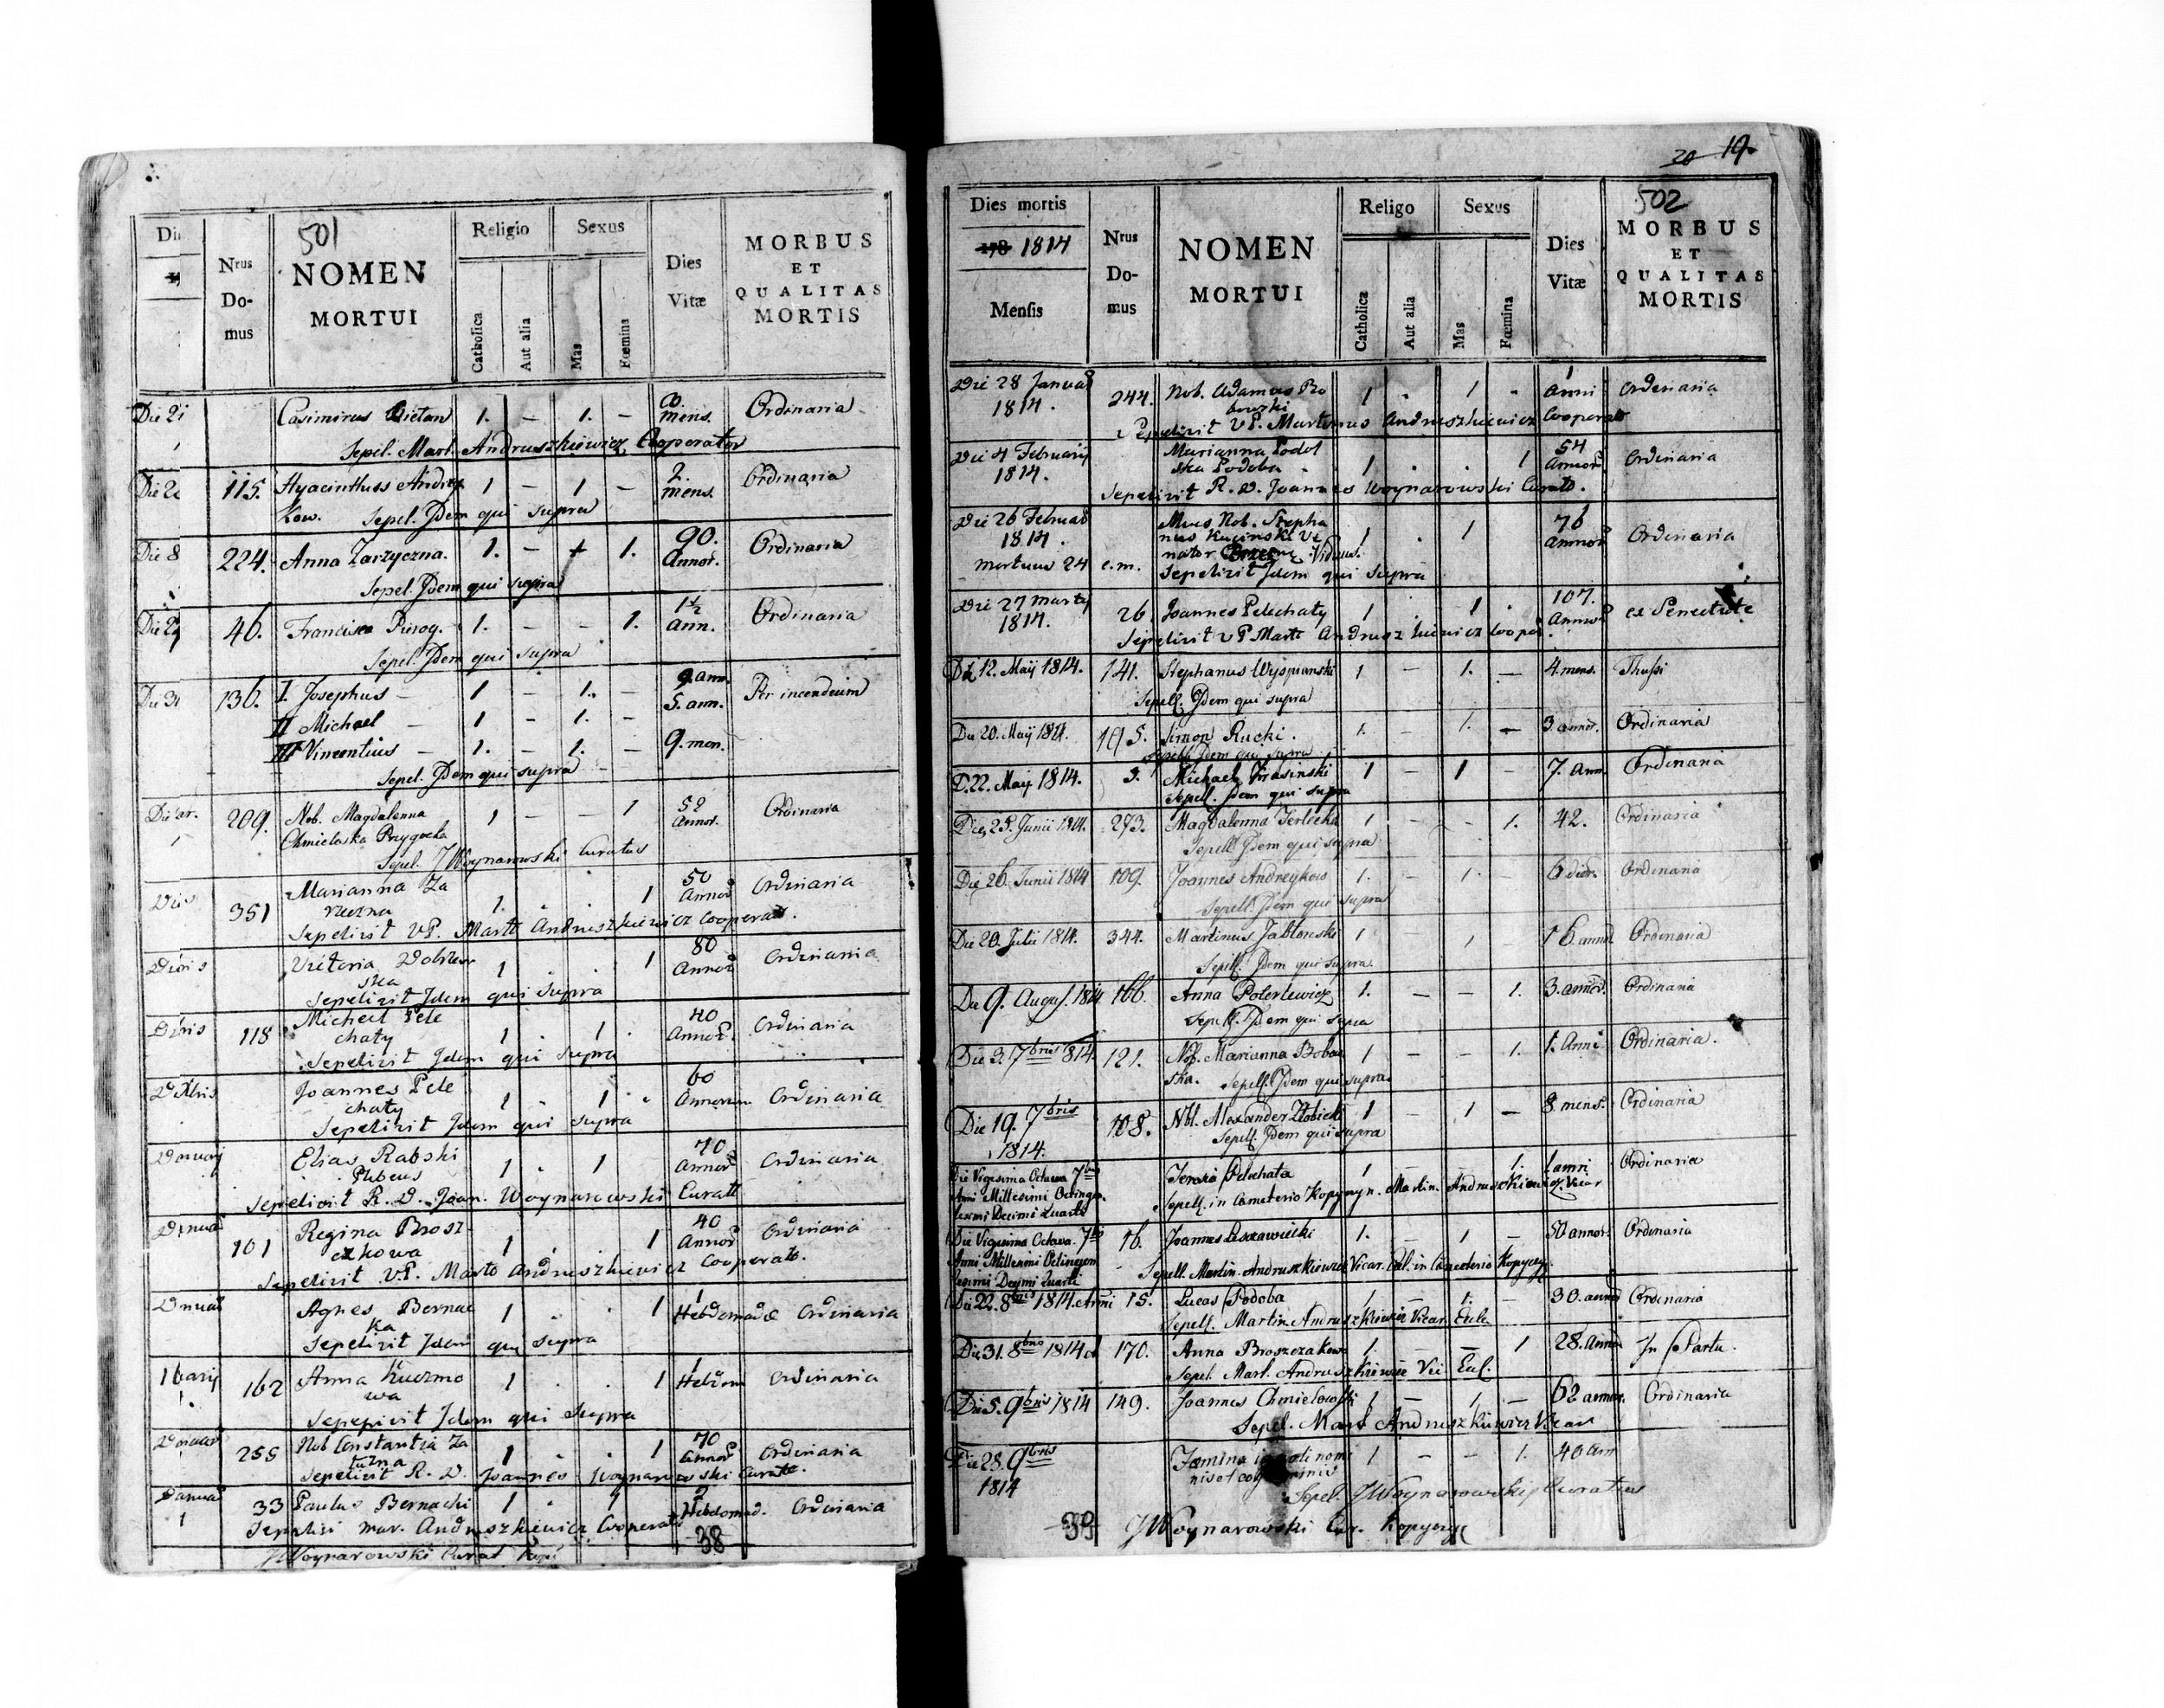 501
Religio Sexus
Nrus Do- mus
NOMEN MORTUI
Catholica Aut alia Mas Fœmina
Dies Vitæ
MORBUS ET QUALITAS MORTIS
Casimirus 1. – 1. – mens. Ordinaria
Sepel. Mart. Andruszkiewicz Cooperator
115. Hyacinthus Andrey 1 – 1 – 2. mens. Ordinaria
kow. Sepel. Idem qui supra
Die 8 224. Anna Zarzyczna. 1. – 1. 90. Annor. Ordinaria
Sepel. Idem qui supra
46. Francisca Pirog. 1. – – 1. 1½ ann. Ordinaria
Sepel. Idem qui supra
136. I. Josephus – 1 – 1. – 9. ann. Per incendium
II Michael – 1 – 1. – 5. ann.
III Vincentius – 1. – 1. – 9. men.
Sepel. Idem qui supra
209. Nob. Magdalenna 1 – – 1 52 Annor. Ordinaria
Chmielaska Przygocka
Sepel. J Woynarowski Curatus
351 Marianna Za 1. . . 1 50 Annor Ordinaria
rzuzna
Sepelivit VP. Mart Andruszkiewicz Cooperat.
Victoria Dobrzew 1 . . 1 80 Annor Ordinaria
ska
Sepelivit Idem qui supra
118 Michael Pele 1 . 1 . 40 Annor. Ordinaria
chaty
Sepelivit Idem qui supra
Joannes Pele 1 . 1 . 60 Annorum Ordinaria
chaty
Sepelivit Idem qui supra
Elias Rabski 1 . 1 70 Annor Ordinaria
Plebeus
Sepelivit R. D. Joan. Woynarowski Curatt
101 Regina Brosz- 1 . . 1 40 Annor Ordinaria
czkowa
Sepelivit VP. Mart Andruszkiewicz Cooperat.
Agnes Bernac 1 . . 1 1 Hebdomadæ Ordinaria
ka
Sepelivit Idem qui supra
162 Anna Kuzmo 1 . . 1 1 Hebdom Ordinaria
wa
Sepepivit Idem qui supra
255 Nob Constantia Za 1 . . 1 70 Annor Ordinaria
luzna
Sepelivit R. D. Joannes Woynarowski Curatt.
33 Paulus Bernacki 1 . 1 2 Hebdomad. Ordinaria
Sepelivi mar. Andruszkiewicz Cooperat
38
J Woynarowski Curat
20 19.
502
Dies mortis
178 1814
Mensis
Nrus Do- mus
NOMEN MORTUI
Religo Sexus
Catholica Aut alia Mas Fœmina
Dies Vitæ
MORBUS ET QUALITAS MORTIS
Die 28 Januar 1814. 244. Nob. Adamus Bo 1 . 1 . 1 Anni Ordinaria
bowski
Sepelivit VP. Martinus Andruszkiewicz Cooperat
Die 4 Februarij 1814. Marianna Podol 1 . . 1 54 Annor Ordinaria
ska Podoba
Sepelivit R. D. Joannes Woynarowski Curatt.
Die 26 Februar 1814. Mcus Nob. Stepha 1 . 1 76 Annor Ordinaria
nus Kucinski Ve
nator Viduus.
mortuus 24 e.m. Sepelivit Idem qui supra
Die 27 Marty 1814. 26 Joannes Pelechaty 1 . 1 . 107. Annor ex Senectute
Sepelivit VP Mart Andruszkiewicz Cooper
Die 12. Maij 1814. 141. Stephanus Wyspianski 1 – 1. – 4. mens. Thussi
Sepell. Idem qui supra
Die 20. Maij 1814. 195. Simon Rucki. 1. – 1. – 3. annor. Ordinaria
Sepell. Idem qui supra
D. 22. Maij 1814. 3. Michael Krasinski 1 – 1 – 7. Ann. Ordinaria
Sepell. Idem qui supra
Die 25. Junii 1814. 273. Magdalenna Terlecka 1 – – 1. 42. Ordinaria
Sepell Idem qui supra
Die 26. Junii 1814 109. Joannes Andreykow 1. – 1. – 6 dier. Ordinaria
Sepell. Idem qui supra
Die 20. Julii 1814. 344. Martinus Jablonski 1 – 1 16. annor Ordinaria
Sepell. Idem qui supra.
Die 9. Augus. 1814 166. Anna Poterlewicz 1. – – 1. 3. annor. Ordinaria
Sepell. Idem qui supra
Die 3. 7bris 1814. 121. Nob. Marianna Bobow 1 – – 1. 1. Anni Ordinaria.
ska. Sepell. Idem qui supra
Die 19. 7bris 1814. 108. Nbl. Alexander Zlobicki 1 – 1 – 8. mens. Ordinaria
Sepell. Idem qui supra
Die Vigesima Octava 7bris Teresia Pelechata 1 – – 1. 1 anni Ordinaria
Anni Millesimi Octingen
tesimi Decimi Quarti Sepell. in Cameterio Kopyczyn. Martin. Andruszkiewicz Vicar
Die Vigesima Octava. 7bris 16. Joannes Leszawiecki 1. – 1 – 50 annor. Ordinaria
Anni Millesimi Octingen
tesimi Decimi Quarti Sepell. Martin. Andruszkiewicz Vicar. Ecl. in Cameterio Kopycz.
Die 22. 8bris 1814. Anni 15. Lucas Podoba 1 – 1. – 30. annor Ordinaria
Sepell. Martin Andruszkiewicz Vicar Ecle
Die 31. 8bris 1814 170. Anna Broszczakowa 1. – – 1 28. Annor In Partu.
Sepel. Mart. Andruszkiewicz Vic Ecl.
Die 5. 9bris 1814 149. Joannes Chmielowski 1 – 1 – 62 annor. Ordinaria
Sepel. Mart Andruszkiewicz Vicar
Die 28. 9bris 1814 Fæmina ignoti nomi 1 – – 1. 40 ann
nis et cognominis
Sepel. J Woynarowski Curatus
39 J Woynarowski Cur. Kopycz